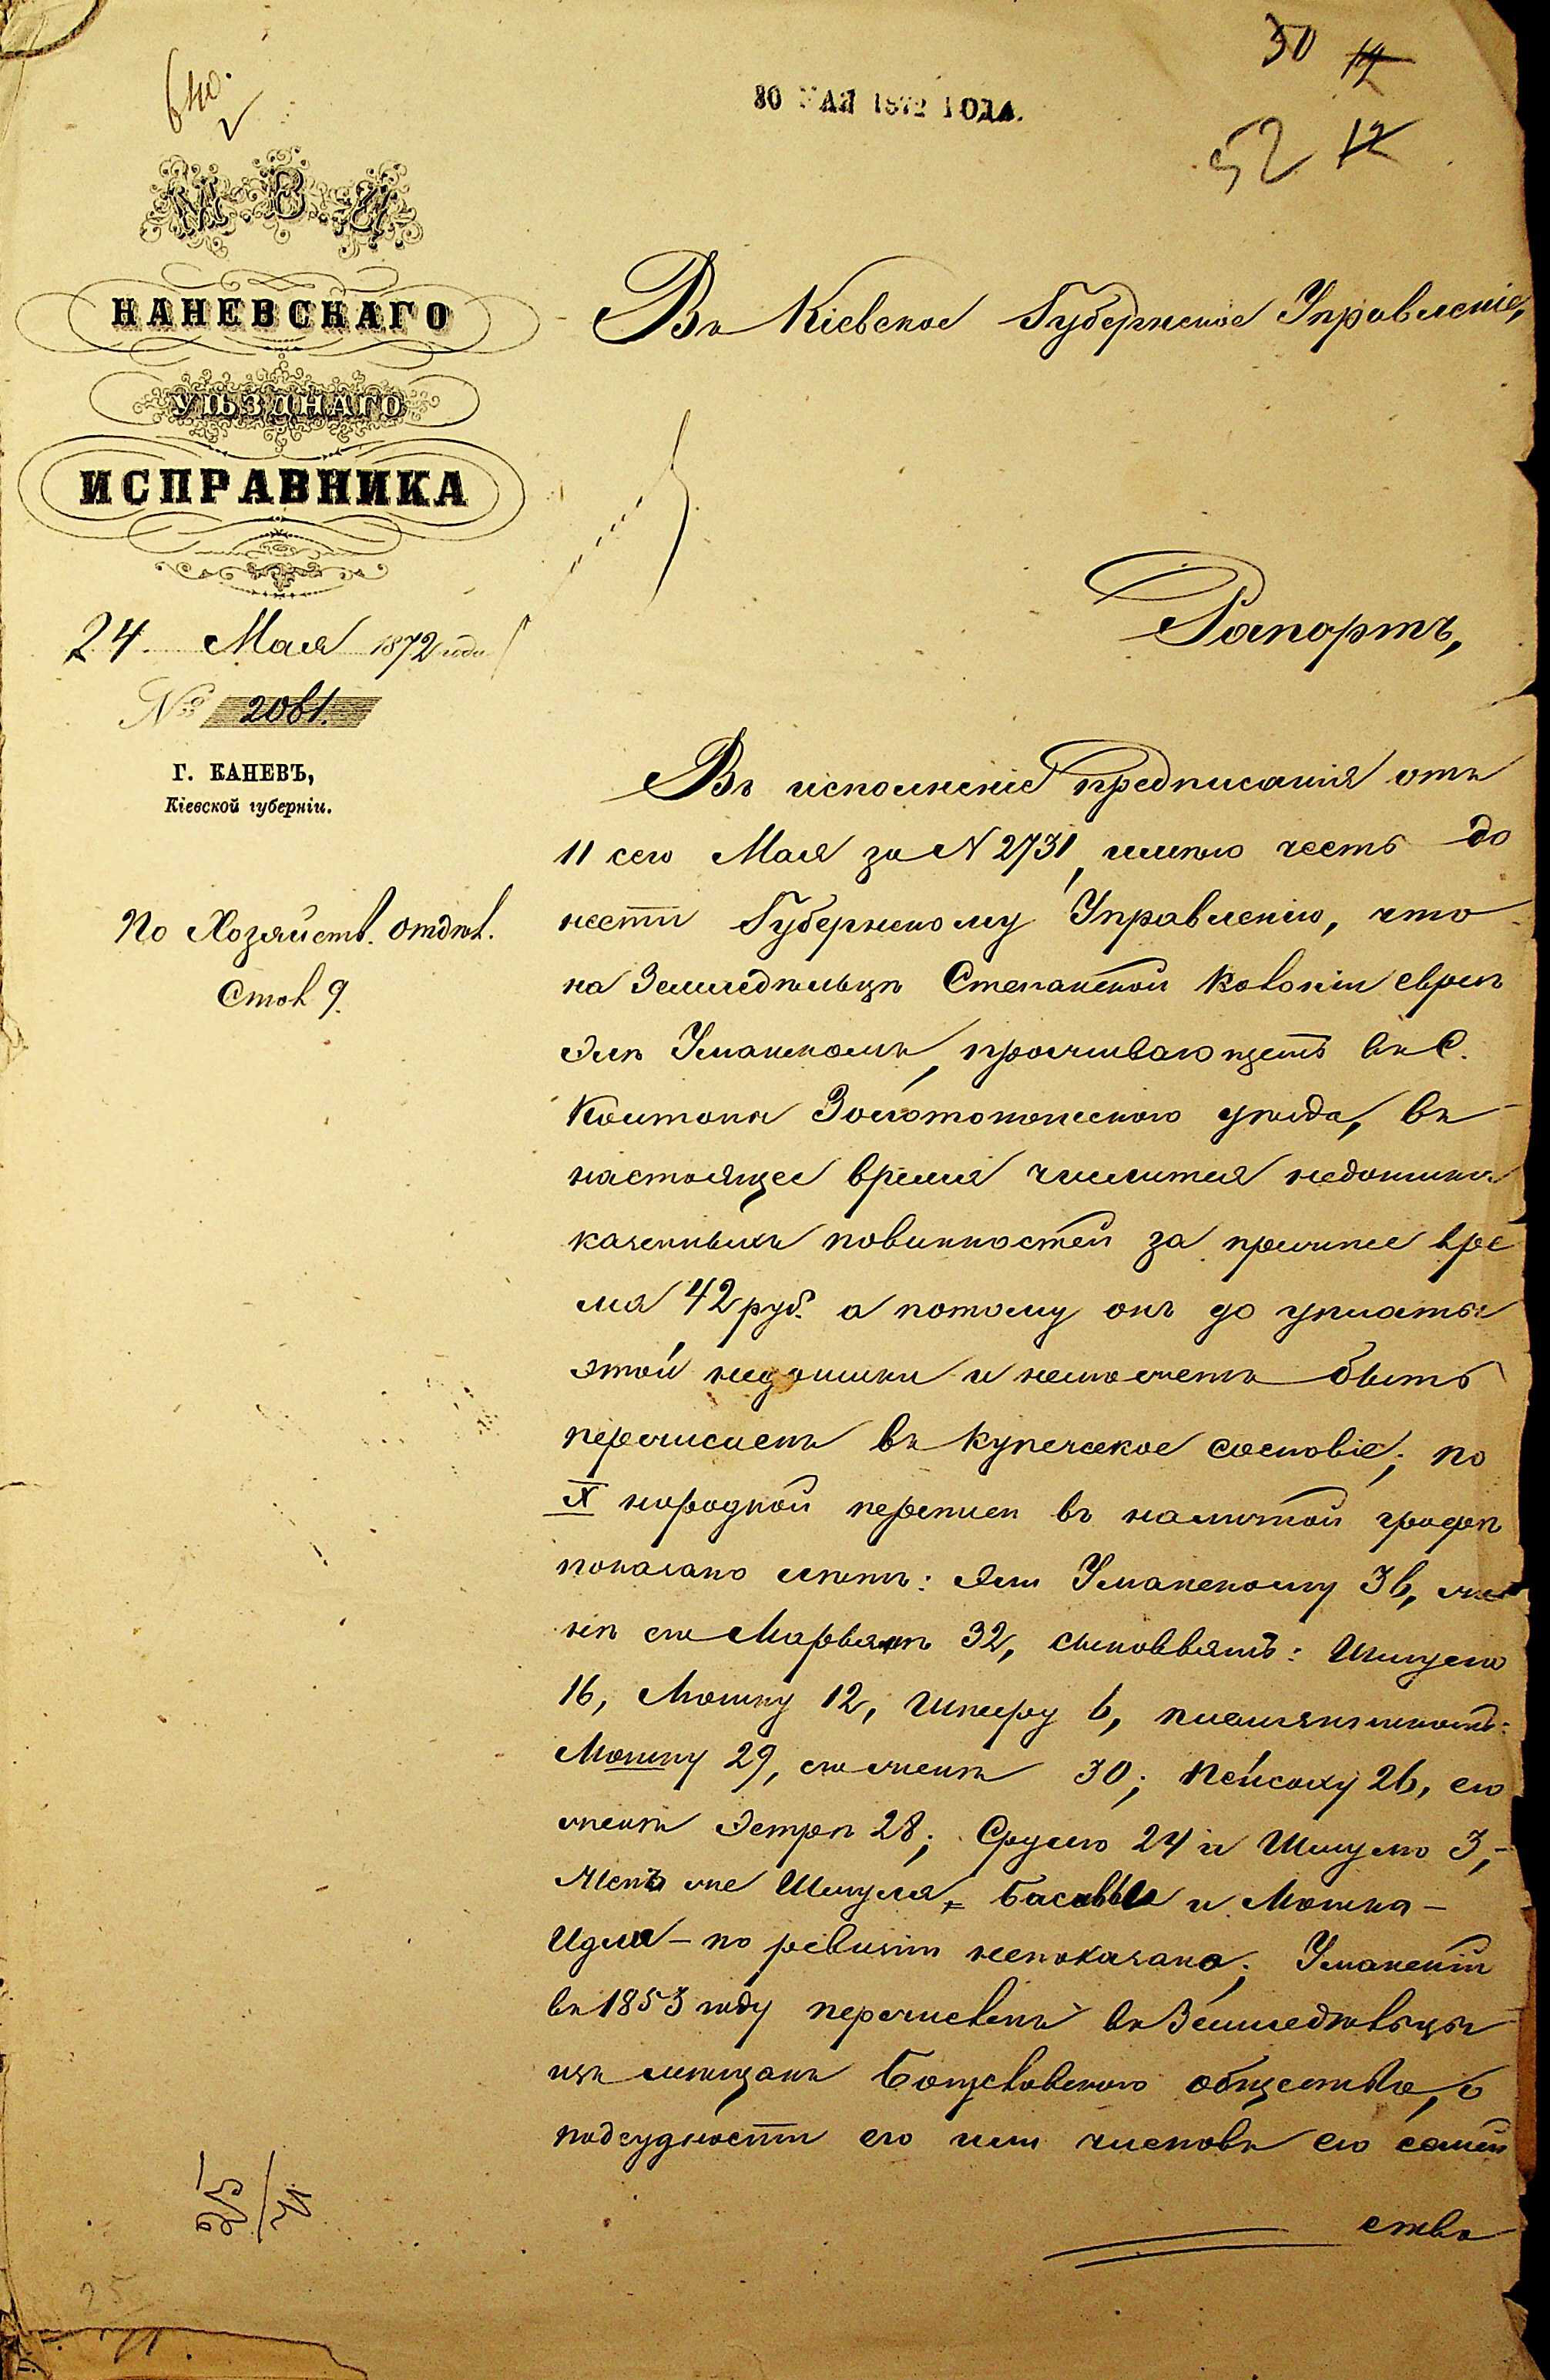 30 14
640.
30 МАЯ 1872 ГОДА.
52 12
М. В. Д.
КАНЕВСКАГО
УѢЗДНАГО
ИСПРАВНИКА
24. Мая 1872 года
№ 2061.
Г. КАНЕВЪ,
Кіевской губерніи.
По Хозяйств. отдѣл.
Стол 9.
Въ Кіевское Губернское Управленіе,
Рапортъ,
Въ исполненіе предписанія отъ
11 сего Мая за N 2731, имѣю честь до
нести Губернскому Управленію, что
на Земледѣльцѣ Степанской Колоніи евреѣ
Элѣ Уманскомъ, проживающемъ въ с.
Золотоношскаго уѣзда, въ
настоящее время числится недоимки
казенныхъ повинностей за прежнее вре
мя 42 руб. а потому онъ до уплаты
этой недоимки и неможетъ быть
перечисленъ въ купеческое сословіе; по
X народной переписи въ наличной графѣ
показано лѣтъ: Эли Уманскому 36, же
нѣ его Марьямѣ 32, сыновьямъ: Шмулю
16, Мошку 12, Шмеру 6, племянникамъ:
Мошку 29, его женѣ 30; Пейсаху 26, его
женѣ Эстрѣ 28; Срулю 24 и Шмулю 3,-
женъ же Шмуля, Басивы и Мошка-
Идли - по ревизіи непоказано; Уманскій
въ 1853 году перечисленъ въ Земледѣльцы
изъ мѣщанъ Богуславскаго общества, о
подсудности его или членовъ его семей
ства
25